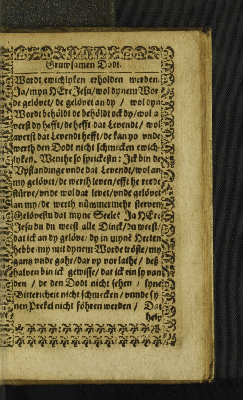 Gruwsamen Dodt.
Wordt ewichlyken erholden werden.
Ja/ myn HEre Jesu/ wol dynem Wor
de gelövet/ de gelövet an dy/ wol dyn
Wordt beholdt de beholdt ock dy/ wol a
verst dy hefft/ de hefft dat Levendt/ wol
averst dat Levendt hefft/ de kan yo unde
werth den Dodt nicht schmecken ewich-
lyken. Wenthe so sprickestu: Ick bin de
Upstandinge unde dat Levendt/ wol an
my gelövet/ de werth leven/ efft he rede
stürve/ unde wol dar levet/ unde gelövet
an my/ de werth nümmermehr sterven.
Gelövestu dat myne Seele? Ja HEre
Jesu du weest alle Dinck/ du weest/
dat ick an dy gelöve/ dy in myne Herten
hebbe my mit dynem Worde tröste/ my
gans unde gahr/ dar up vorlathe/ deß
halven bin ick gewisse/ dat ick ein sy van
den/ de den Dodt nicht sehen/ syne
Bittericheit nicht schmecken/ unde sy
nen Prekel nicht föhlen werden/ Dat
help